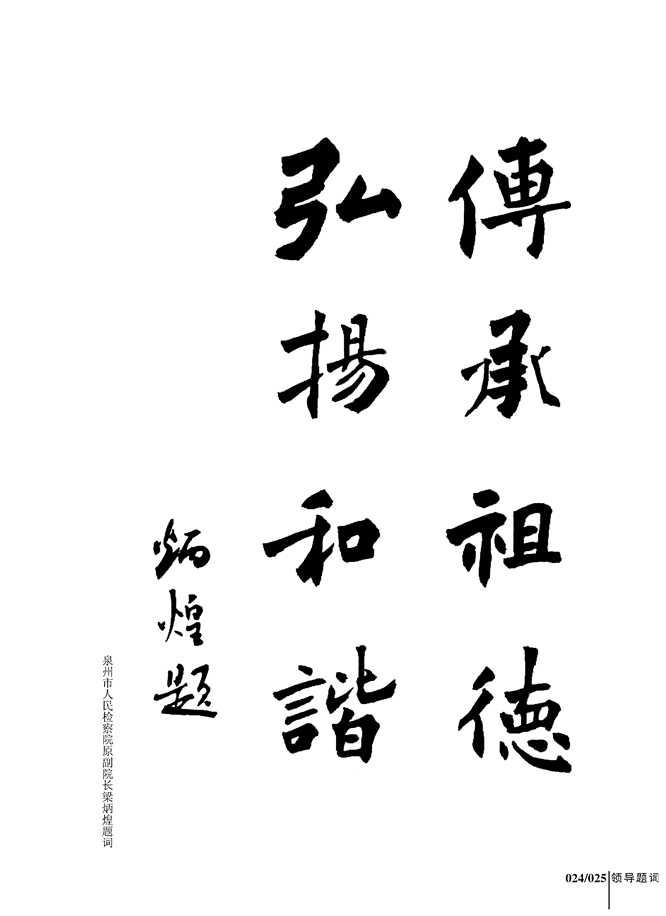 傳承祖德
弘揚和諧
炳煌題
泉州市人民检察院原副院长梁炳煌题词
024/025 领导题词